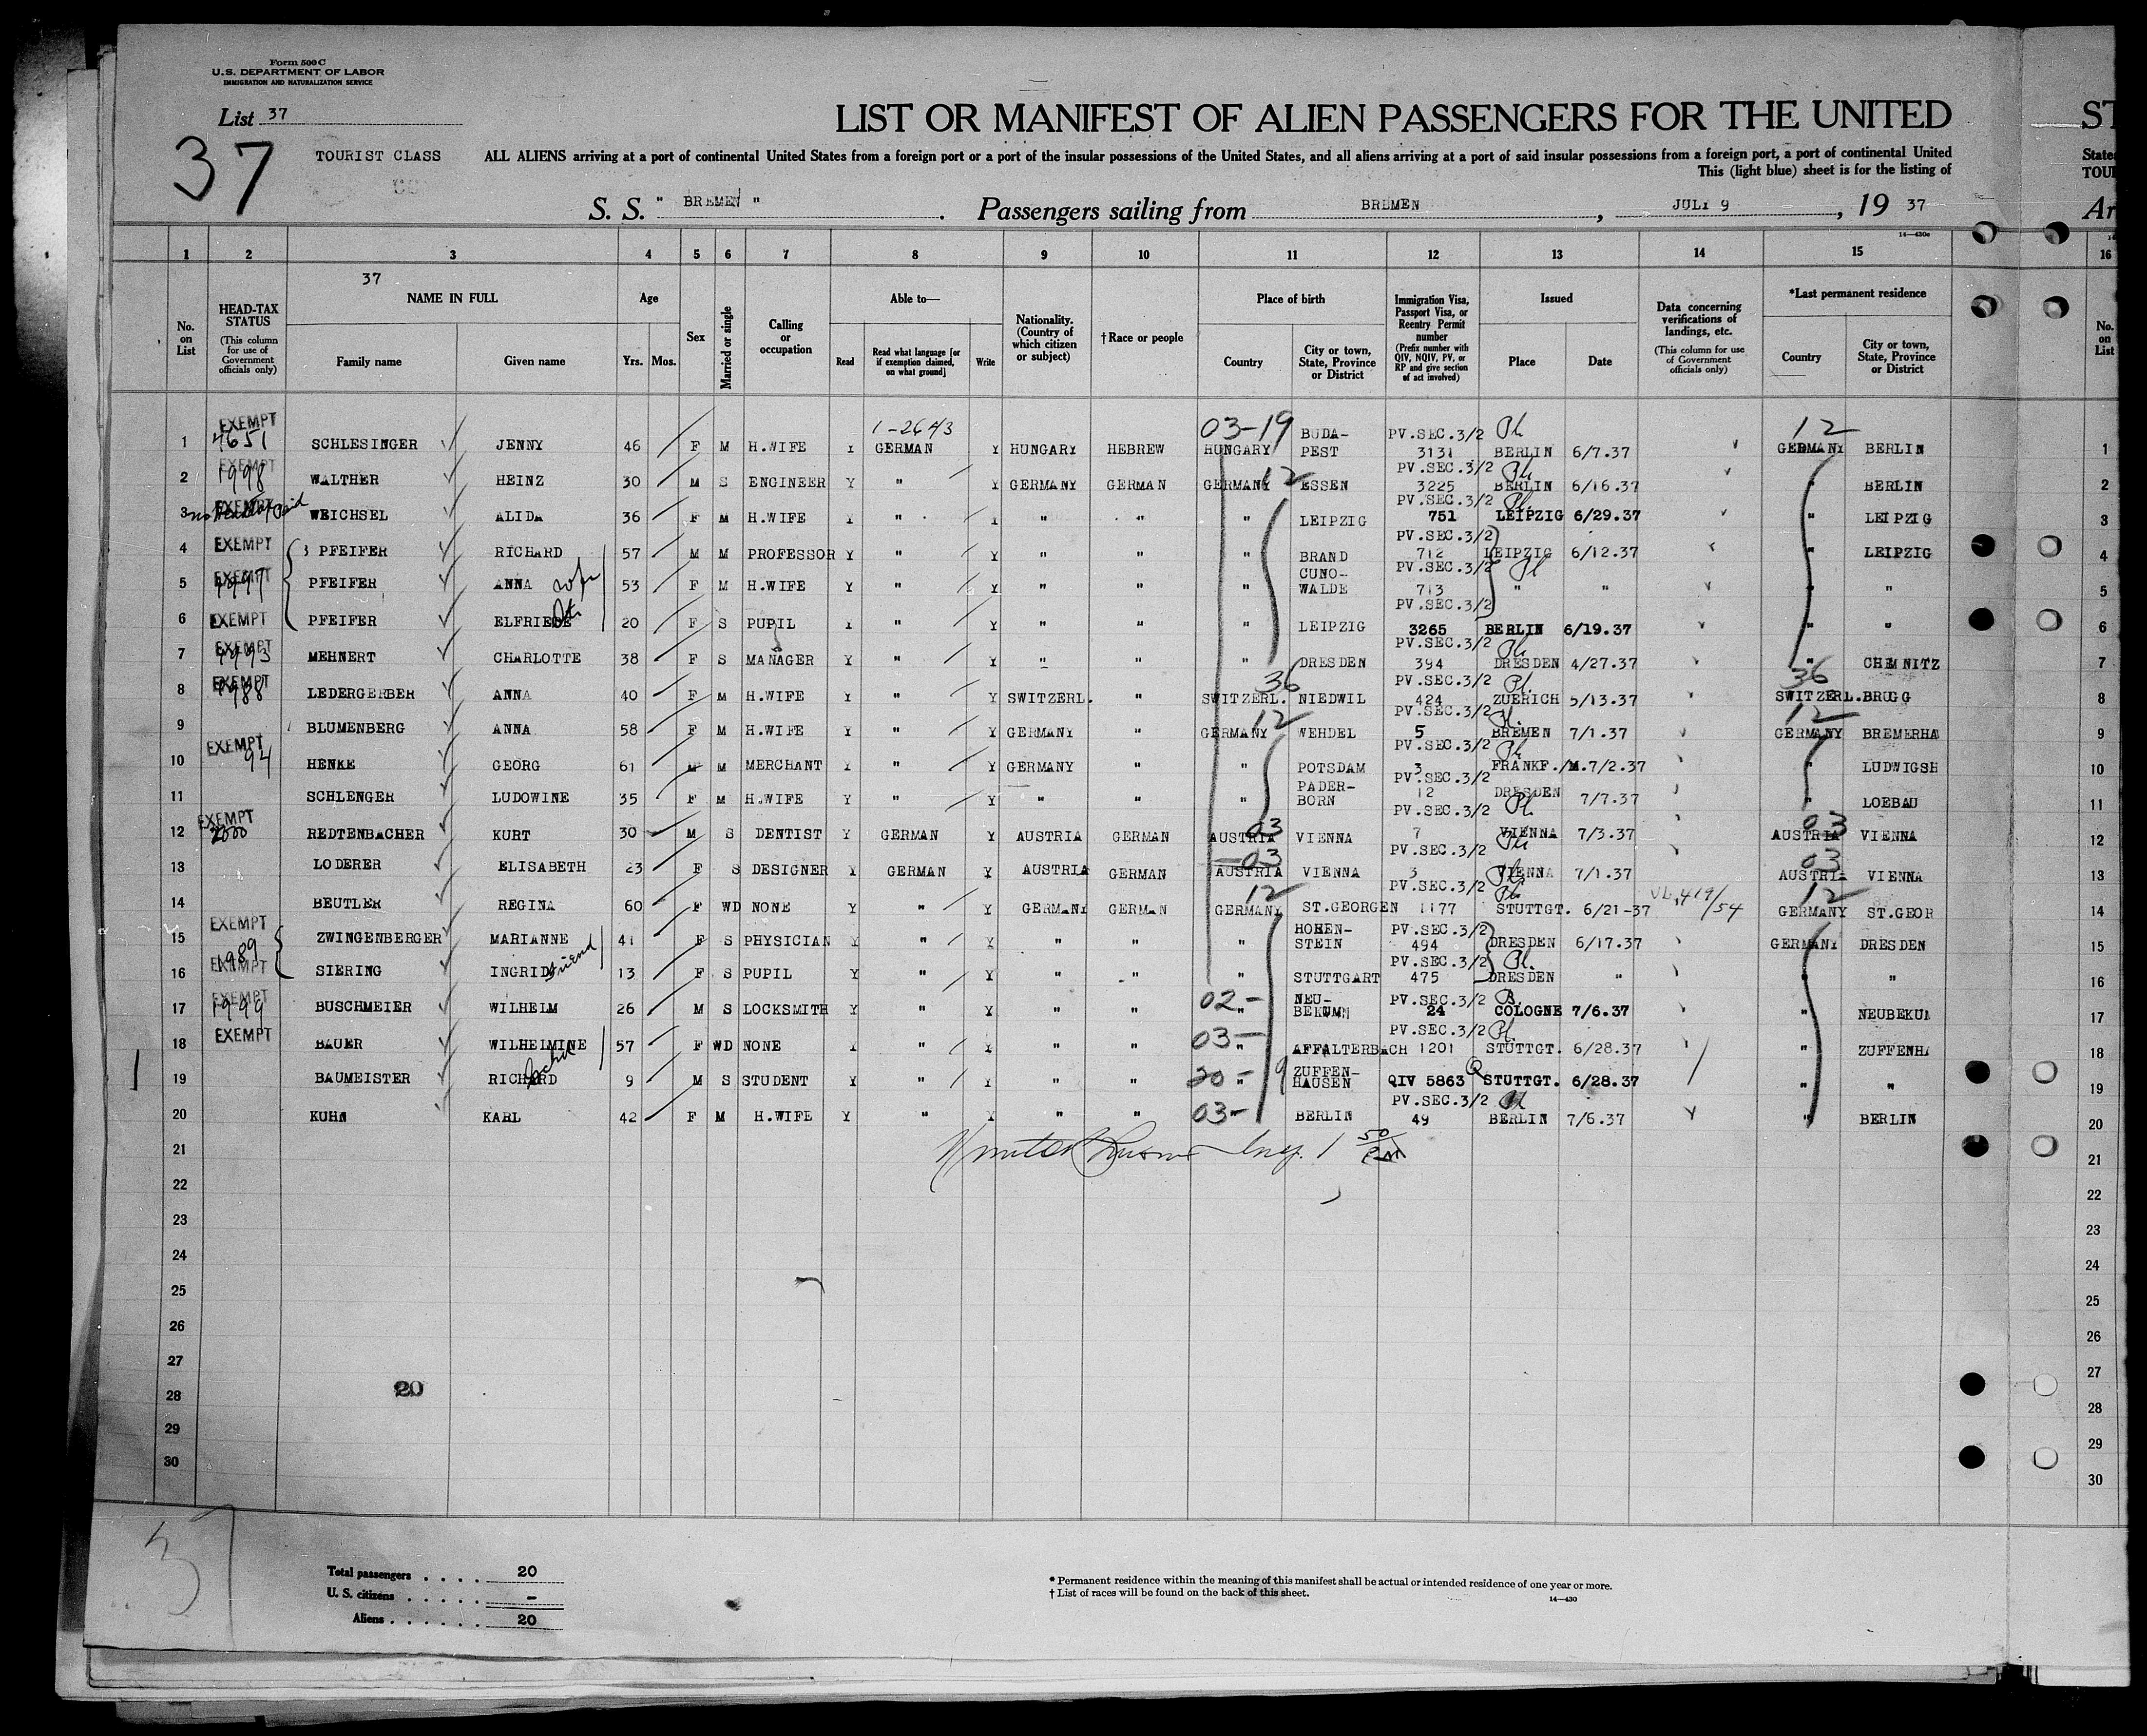 Form 500 C
U.S. DEPARTMENT OF LABOR
IMMIGRATION AND NATURALIZATION SERVICE
List 37
37
TOURIST CLASS
LIST OR MANIFEST OF ALIEN PASSENGERS FOR THE UNITED
ST
ALL ALIENS arriving at a port of continental United States from a foreign port or a port of the insular possessions of the United States, and all aliens arriving at a port of said insular possessions from a foreign port, a port of continental United
This (light blue) sheet is for the listing of
S. S. " BREMEN " . Passengers sailing from BREMEN , JULY 9 , 19 37
14—430c
1 2 3 4 5 6 7 8 9 10 11 12 13 14 15 16
No. on List
HEAD-TAX STATUS (This column for use of Government officials only)
37
NAME IN FULL
Family name Given name
Age
Yrs. Mos.
Sex
Married or single
Calling or occupation
Able to—
Read Read what language [or if exemption claimed, on what ground] Write
Nationality. (Country of which citizen or subject)
†Race or people
Place of birth
Country City or town, State, Province or District
Immigration Visa, Passport Visa, or Reentry Permit number (Prefix number with QIV, NQIV, PV, or RP and give section of act involved)
Issued
Place Date
Data concerning verifications of landings, etc. (This column for use of Government officials only)
*Last permanent residence
Country City or town, State, Province or District
No. on List
1 EXEMPT 4651 SCHLESINGER JENNY 46 F M H.WIFE Y 1-2643 GERMAN Y HUNGARY HEBREW 03-19 HUNGARY BUDA-PEST PV.SEC.3/2 3131 BERLIN 6/7.37 12 GERMANY BERLIN 1
2 EXEMPT 1998 WALTHER HEINZ 30 M S ENGINEER Y " Y GERMANY GERMAN GERMANY 12 ESSEN PV.SEC.3/2 3225 BERLIN 6/16.37 " BERLIN 2
3 EXEMPT WEICHSEL ALIDA 36 F M H.WIFE Y " Y " " " LEIPZIG PV.SEC.3/2 751 LEIPZIG 6/29.37 " LEIPZIG 3
4 EXEMPT PFEIFER RICHARD 57 M M PROFESSOR Y " Y " " " BRAND PV.SEC.3/2 712 LEIPZIG 6/12.37 " LEIPZIG 4
5 EXEMPT PFEIFER ANNA 53 F M H.WIFE Y " Y " " " CUNO-WALDE PV.SEC.3/2 713 " " " " 5
6 EXEMPT PFEIFER ELFRIEDE 20 F S PUPIL Y " Y " " " LEIPZIG PV.SEC.3/2 3265 BERLIN 6/19.37 " " 6
7 EXEMPT MEHNERT CHARLOTTE 38 F S MANAGER Y " Y " " " DRESDEN PV.SEC.3/2 394 DRESDEN 4/27.37 " CHEMNITZ 7
8 EXEMPT LEDERGERBER ANNA 40 F M H.WIFE Y " Y SWITZERL. " 36 SWITZERL. NIEDWIL PV.SEC.3/2 424 ZUERICH 5/13.37 36 SWITZERL. BRUGG 8
9 BLUMENBERG ANNA 58 F M H.WIFE Y " Y GERMANY " 12 GERMANY WEHDEL PV.SEC.3/2 5 BREMEN 7/1.37 12 GERMANY BREMERHA 9
10 EXEMPT 94 HENKE GEORG 61 M M MERCHANT Y " Y GERMANY " " POTSDAM PV.SEC.3/2 3 FRANKF./M. 7/2.37 " LUDWIGSH 10
11 SCHLENGER LUDOWINE 35 F M H.WIFE Y " Y " " " PADER-BORN PV.SEC.3/2 12 DRESDEN 7/7.37 " LOEBAU 11
12 EXEMPT 2000 REDTENBACHER KURT 30 M S DENTIST Y GERMAN Y AUSTRIA GERMAN 03 AUSTRIA VIENNA PV.SEC.3/2 7 VIENNA 7/3.37 03 AUSTRIA VIENNA 12
13 LODERER ELISABETH 23 F S DESIGNER Y GERMAN Y AUSTRIA GERMAN 03 AUSTRIA VIENNA PV.SEC.3/2 3 VIENNA 7/1.37 03 AUSTRIA VIENNA 13
14 BEUTLER REGINA 60 F WD NONE Y " Y GERMANY GERMAN 12 GERMANY ST.GEORGEN PV.SEC.3/2 1177 STUTTGT. 6/21-37 12 GERMANY ST.GEOR 14
15 EXEMPT ZWINGENBERGER MARIANNE 41 F S PHYSICIAN Y " Y " " " HOHEN-STEIN PV.SEC.3/2 494 DRESDEN 6/17.37 GERMANY DRESDEN 15
16 1989 EXEMPT SIERING INGRID friend 13 F S PUPIL Y " Y " " " STUTTGART PV.SEC.3/2 475 DRESDEN " " " 16
17 EXEMPT 1999 BUSCHMEIER WILHELM 26 M S LOCKSMITH Y " Y " " 02- " NEU-BEKUMN PV.SEC.3/2 24 COLOGNE 7/6.37 " NEUBEKUM 17
18 EXEMPT BAUER WILHELMINE 57 F WD NONE Y " Y " " 03- " AFFALTERBACH PV.SEC.3/2 1201 STUTTGT. 6/28.37 " ZUFFENHA 18
19 BAUMEISTER RICHARD 9 M S STUDENT Y " Y " " 20- " ZUFFEN-HAUSEN QIV 5863 STUTTGT. 6/28.37 " " 19
20 KUHN KARL 42 F M H.WIFE Y " Y " " 03- " BERLIN PV.SEC.3/2 49 BERLIN 7/6.37 " BERLIN 20
21 21
22 22
23 23
24 24
25 25
26 26
27 27
28 20 28
29 29
30 30
37
Total passengers . . . . 20
U. S. citizens . . . . . –
Aliens . . . . . . 20
* Permanent residence within the meaning of this manifest shall be actual or intended residence of one year or more.
† List of races will be found on the back of this sheet.
14—430